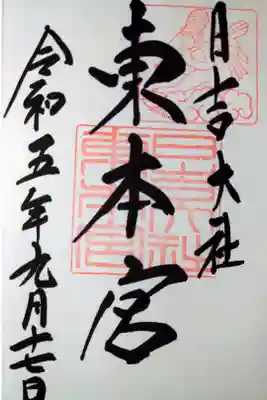 日吉大社
東本宮
令和五年九月十七日